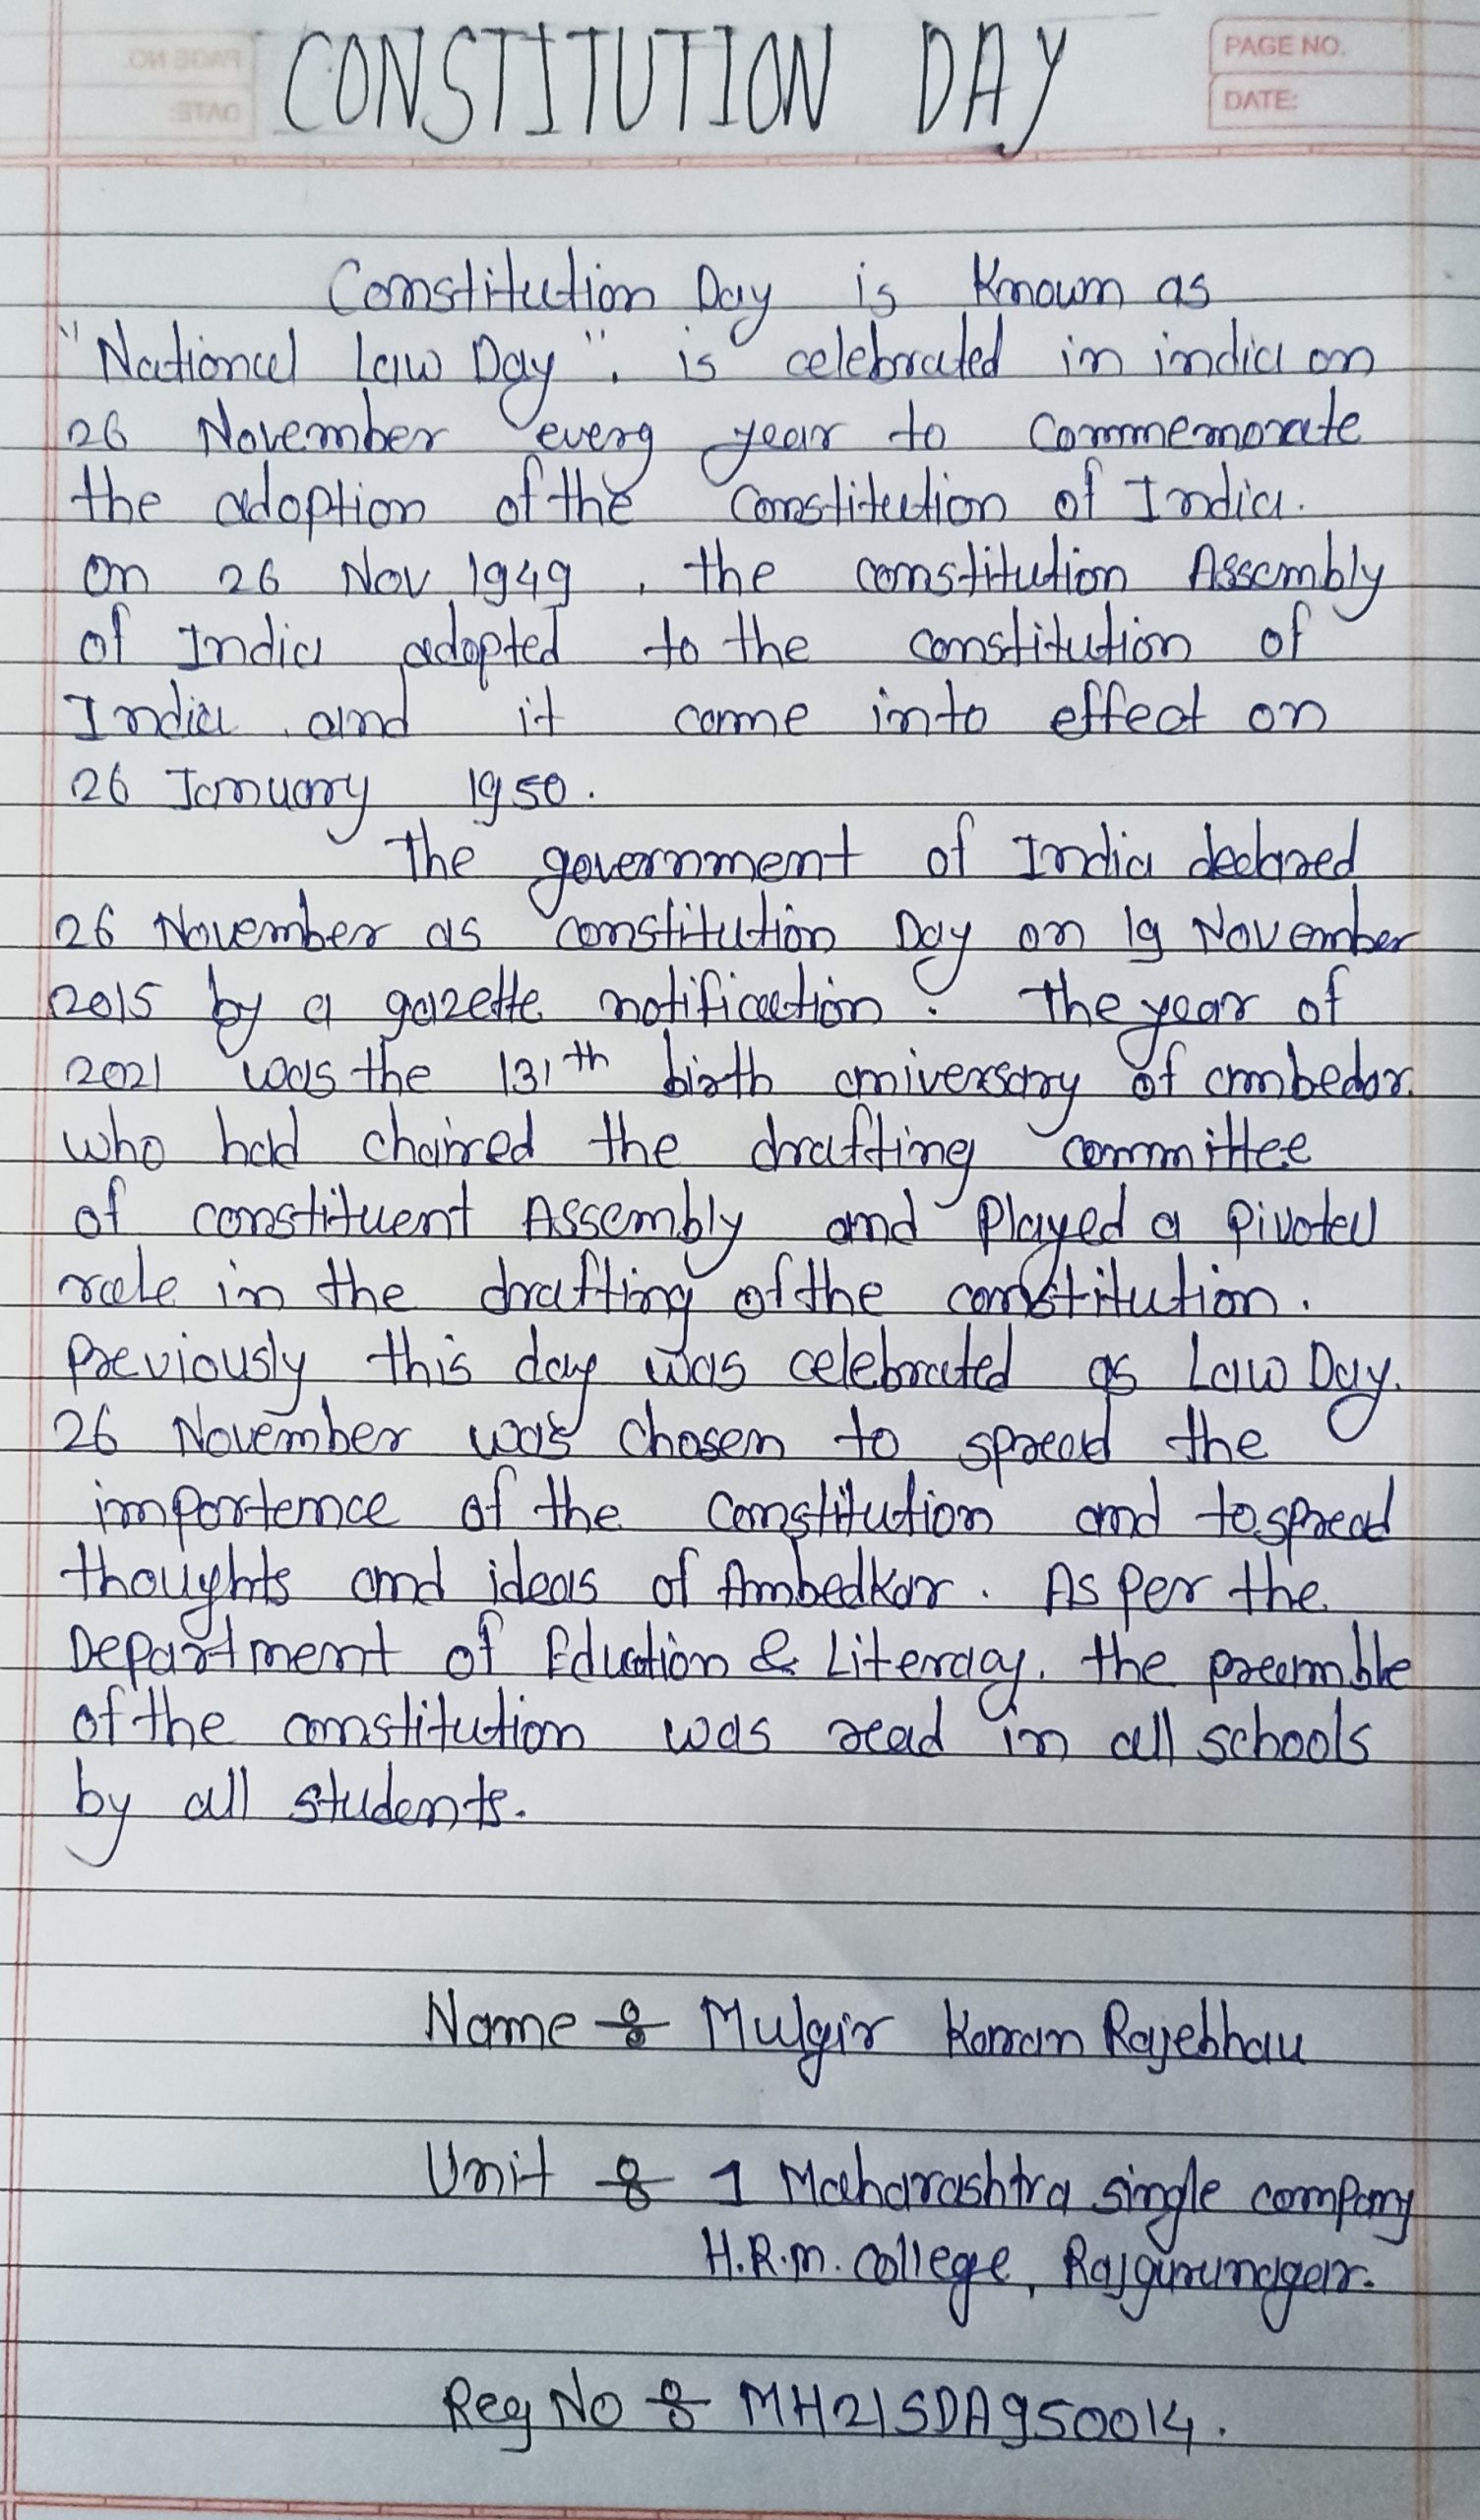 CONSTITUTION DAY
PAGE NO.
DATE:
Constitution Day is Known as
"National Law Day". is celebrated in india on
26 November every year to commemorate
the adoption of the constitution of India.
on 26 Nov 1949, the constitution Assembly
of India adopted to the constitution of
India and it came into effect on
26 January 1950.
The government of India declared
26 November as constitution Day on 19 November
2015 by a gazette notification. The year of
2021 was the 131th birth aniversary of ambedar.
who had chaired the drafting committee
of constituent Assembly and Played a Pivotal
role in the drafting of the constitution.
Previously this day was celebrated as Law Day.
26 November was chosen to spread the
importance of the constitution and to spread
thoughts and ideas of Ambedkar. As Per the
Department of Eduction & Literacy. the preamble
of the constitution was read in all schools
by all students.
Name : Mulgir Karan Rajebhau
Unit : 1 Maharashtra single company
H.R.M. College, Rajgurunagar.
Reg No : MH21SDA950014.